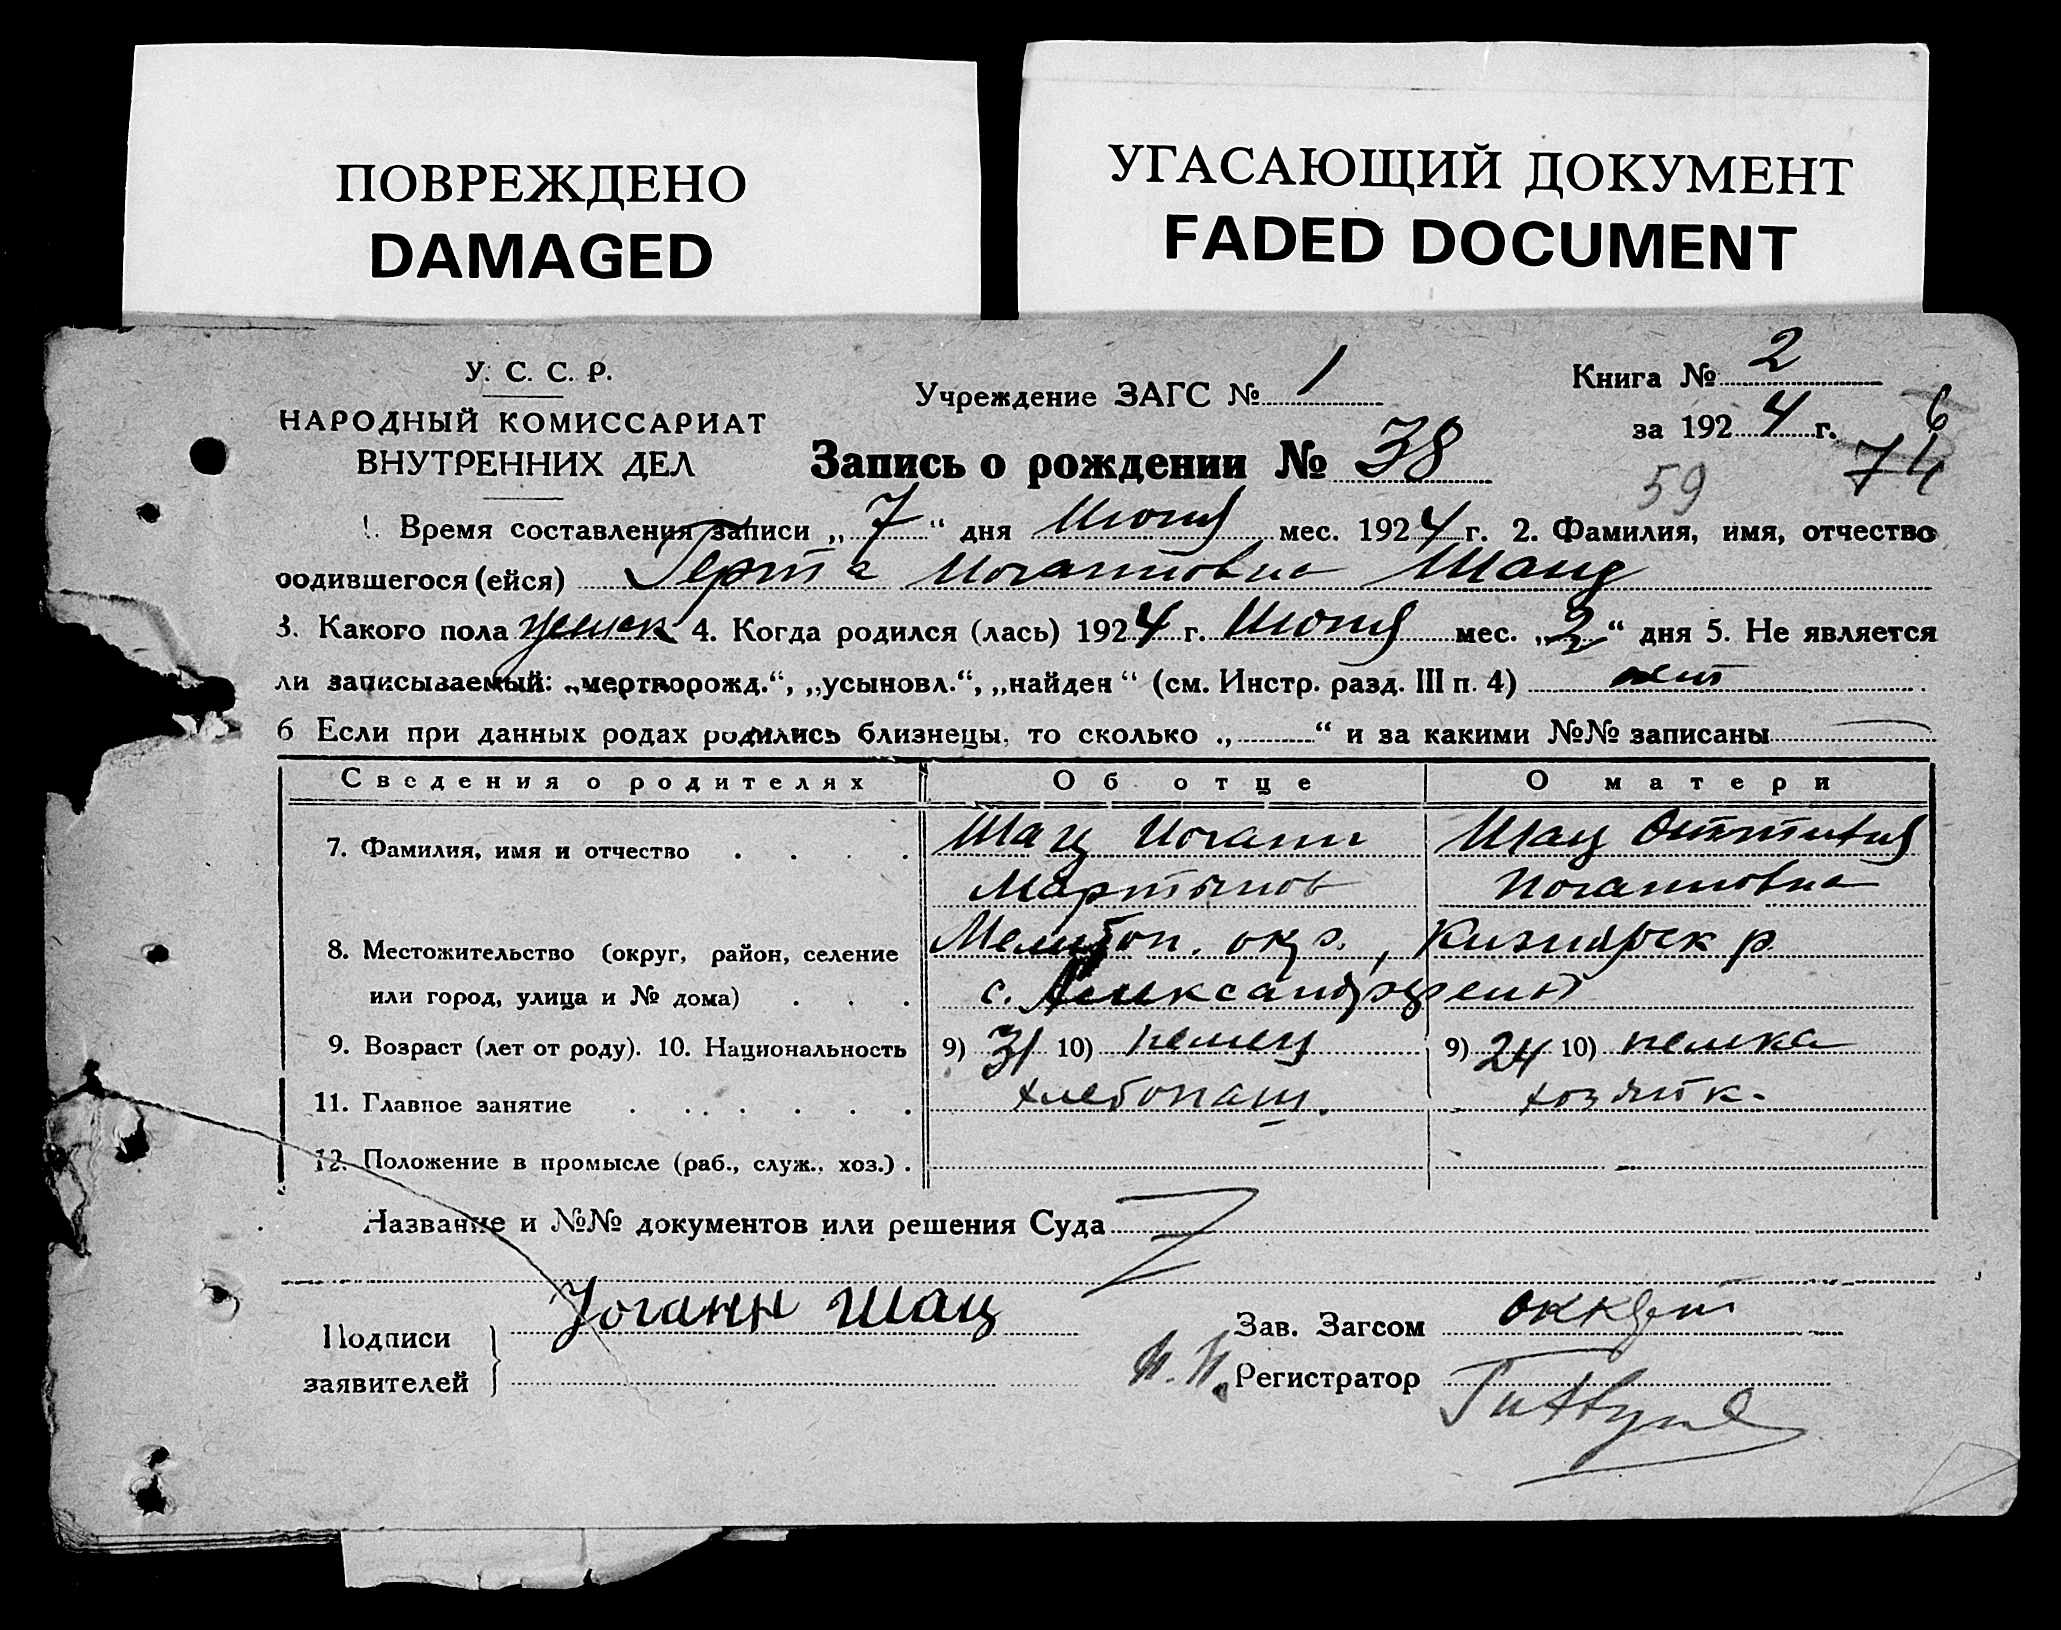 ПОВРЕЖДЕНО
DAMAGED
УГАСАЮЩИЙ ДОКУМЕНТ
FADED DOCUMENT
У. С. С. Р.
НАРОДНЫЙ КОМИССАРИАТ
ВНУТРЕННИХ ДЕЛ
Учреждение ЗАГС № 1
Книга № 2
за 1924 г.
6
74
59
Запись о рождении № 38
1. Время составления записи „7“ дня Июня мес. 1924 г. 2. Фамилия, имя, отчество
родившегося (ейся) Герта Иоганновна Шац
3. Какого пола женск 4. Когда родился (лась) 1924 г. Июня мес. „2“ дня 5. Не является
ли записываемый: „мертворожд.“, „усыновл.“, „найден“ (см. Инстр. разд. III п. 4) нет
6 Если при данных родах родились близнецы, то сколько „ “ и за какими №№ записаны
Сведения о родителях Об отце О матери
7. Фамилия, имя и отчество Шац Иоганн Шац Оттилия
Мартынов Иоганновна
8. Местожительство (округ, район, селение Мелитоп. окр., Кизиярск р.
или город, улица и № дома) с. Александрфельд
9. Возраст (лет от роду). 10. Национальность 9) 31 10) немец 9) 24 10) немка
11. Главное занятие хлебопаш. хозяйк.
12. Положение в промысле (раб., служ., хоз.)
Название и №№ документов или решения Суда
Подписи
заявителей
Иоганн Шац
Зав. Загсом
Регистратор